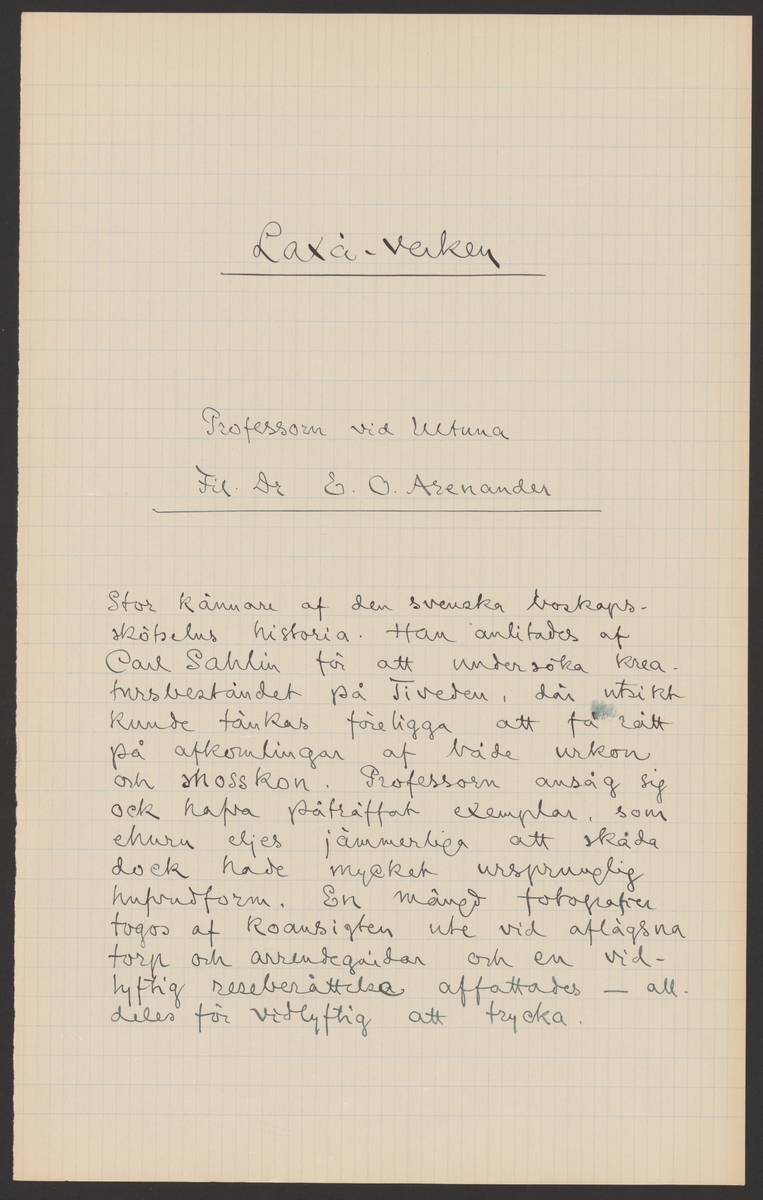 Laxå-verken
Professorn vid Ultuna
Fil. Dr E. O. Arenander
Stor kännare af den svenska boskaps-
skötselns historia. Han anlitades af
Carl Sahlin för att undersöka krea-
tursbeståndet på Tiveden, där utsikt
kunde tänkas föreligga att få rätt
på afkomlingar af både urkon
och mosskon. Professorn ansåg sig
ock hafva påträffat exemplar, som
ehuru eljes jämmerliga att skåda
dock hade mycket ursprunglig
hufvudform. En mängd fotografier
togos af koansigten ute vid aflägsna
torp och arrendegårdar och en vid-
lyftig reseberättelse affattades — all-
deles för vidlyftig att trycka.